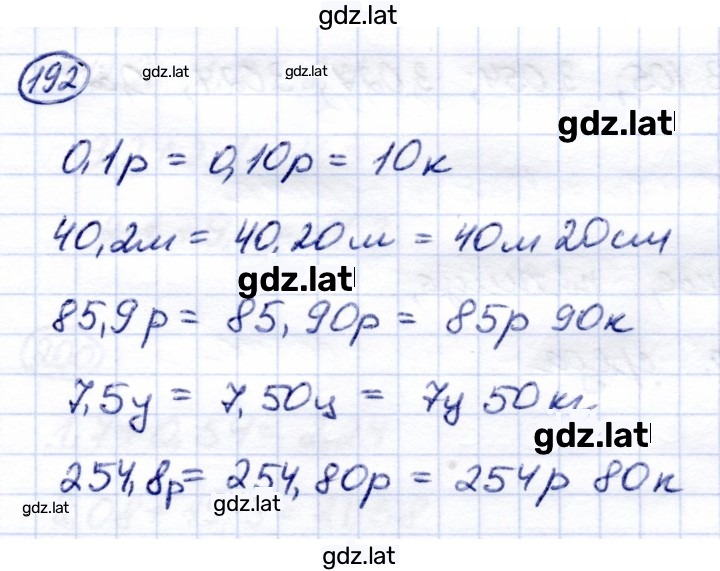 gdz.lat
192
gdz.lat gdz.lat
gdz.lat
0,1р = 0,10р = 10к
40,2м = 40,20м = 40м 20см
gdz.lat
85,9р = 85,90р = 85р 90к
7,5ц = 7,50ц = 7ц 50кг
gdz.lat
254,8р = 254,80р = 254р 80к
gdz.lat gdz.lat
gdz.lat